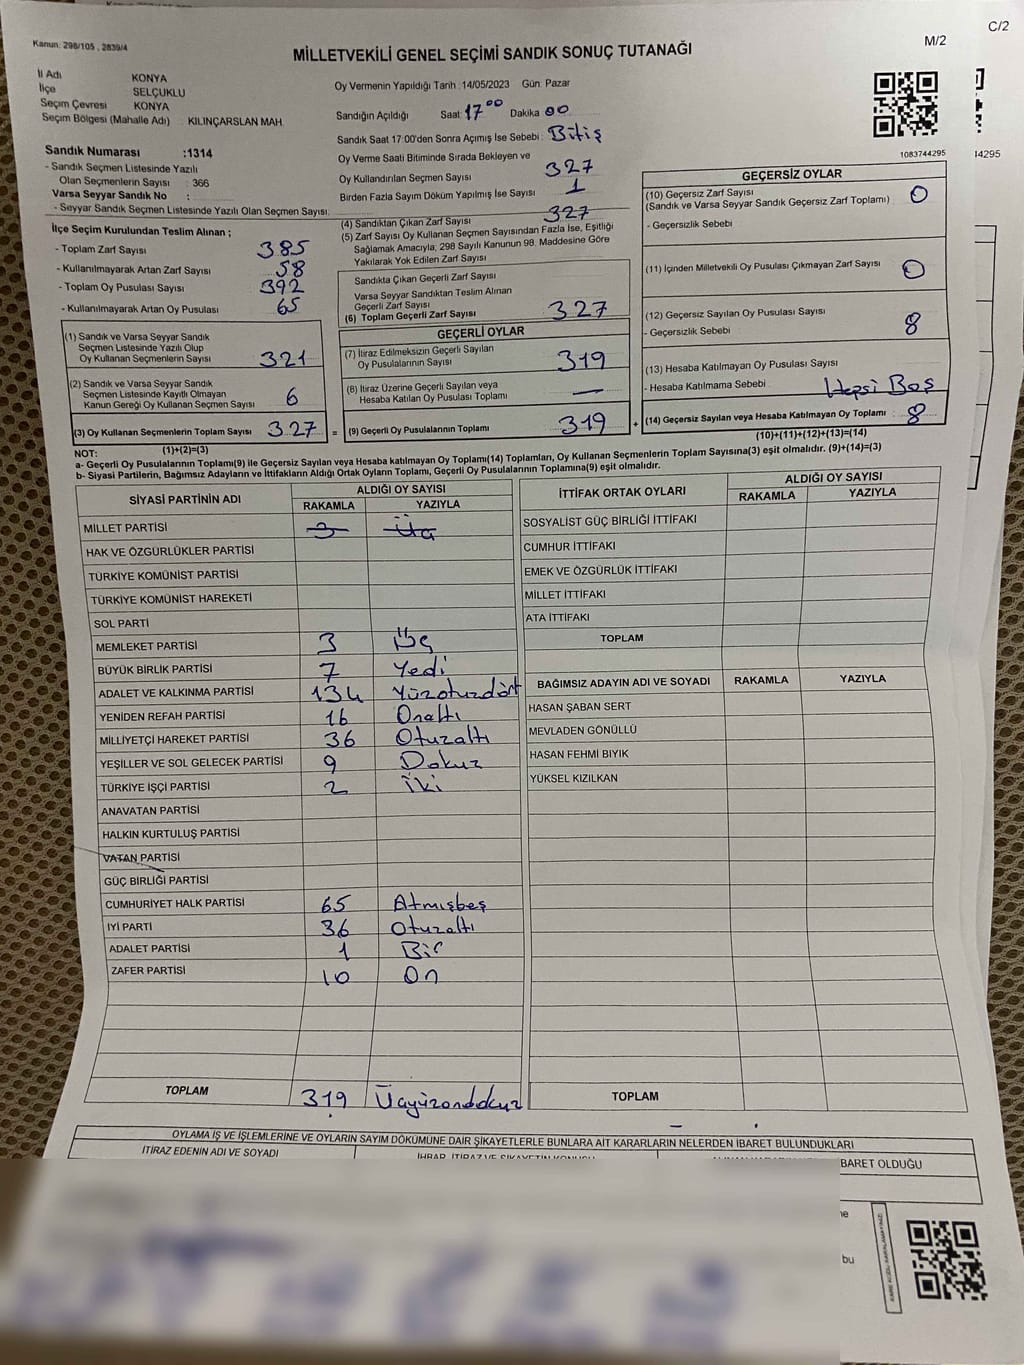 C/2
M/2
Kanun: 298/105 , 2839/4
MİLLETVEKİLİ GENEL SEÇİMİ SANDIK SONUÇ TUTANAĞI
İl Adı KONYA
İlçe SELÇUKLU
Seçim Çevresi KONYA
Seçim Bölgesi (Mahalle Adı) : KILINÇARSLAN MAH.
Sandık Numarası :1314
- Sandık Seçmen Listesinde Yazılı
Olan Seçmenlerin Sayısı : 366
Varsa Seyyar Sandık No :
- Seyyar Sandık Seçmen Listesinde Yazılı Olan Seçmen Sayısı:
İlçe Seçim Kurulundan Teslim Alınan ;
- Toplam Zarf Sayısı 385
- Kullanılmayarak Artan Zarf Sayısı 58
- Toplam Oy Pusulası Sayısı 392
- Kullanılmayarak Artan Oy Pusulası 65
(1) Sandık ve Varsa Seyyar Sandık
Seçmen Listesinde Yazılı Olup
Oy Kullanan Seçmenlerin Sayısı 321
(2) Sandık ve Varsa Seyyar Sandık
Seçmen Listesinde Kayıtlı Olmayan
Kanun Gereği Oy Kullanan Seçmen Sayısı 6
(3) Oy Kullanan Seçmenlerin Toplam Sayısı 327
(1)+(2)=(3)
Oy Vermenin Yapıldığı Tarih :14/05/2023 Gün: Pazar
Sandığın Açıldığı Saat: 17 00 Dakika 00
Sandık Saat 17:00'den Sonra Açımış İse Sebebi : Bitiş
Oy Verme Saati Bitiminde Sırada Bekleyen ve
Oy Kullandırılan Seçmen Sayısı 327
Birden Fazla Sayım Döküm Yapılmış İse Sayısı 1
(4) Sandıktan Çıkan Zarf Sayısı 327
(5) Zarf Sayısı Oy Kullanan Seçmen Sayısından Fazla İse, Eşitliği
Sağlamak Amacıyla, 298 Sayılı Kanunun 98. Maddesine Göre
Yakılarak Yok Edilen Zarf Sayısı
Sandıkta Çıkan Geçerli Zarf Sayısı
Varsa Seyyar Sandıktan Teslim Alınan
Geçerli Zarf Sayısı
(6) Toplam Geçerli Zarf Sayısı 327
GEÇERLİ OYLAR
(7) İtiraz Edilmeksizin Geçerli Sayılan
Oy Pusulalarının Sayısı 319
(8) İtiraz Üzerine Geçerli Sayılan veya
Hesaba Katılan Oy Pusulası Toplamı —
= (9) Geçerli Oy Pusulalarının Toplamı 319 +
1083744295
14295
GEÇERSİZ OYLAR
(10) Geçersiz Zarf Sayısı
(Sandık ve Varsa Seyyar Sandık Geçersiz Zarf Toplamı) 0
- Geçersizlik Sebebi
(11) İçinden Milletvekili Oy Pusulası Çıkmayan Zarf Sayısı 0
(12) Geçersiz Sayılan Oy Pusulası Sayısı 8
- Geçersizlik Sebebi
(13) Hesaba Katılmayan Oy Pusulası Sayısı
- Hesaba Katılmama Sebebi Hepsi Boş
(14) Geçersiz Sayılan veya Hesaba Katılmayan Oy Toplamı 8
(10)+(11)+(12)+(13)=(14)
NOT:
a- Geçerli Oy Pusulalarının Toplamı(9) ile Geçersiz Sayılan veya Hesaba Katılmayan Oy Toplamı(14) Toplamları, Oy Kullanan Seçmenlerin Toplam Sayısına(3) eşit olmalıdır. (9)+(14)=(3)
b- Siyasi Partilerin, Bağımsız Adayların ve İttifakların Aldığı Ortak Oyların Toplamı, Geçerli Oy Pusulalarının Toplamına(9) eşit olmalıdır.
SİYASİ PARTİNİN ADI ALDIĞI OY SAYISI
RAKAMLA YAZIYLA
MİLLET PARTİSİ 3 Üç
HAK VE ÖZGÜRLÜKLER PARTİSİ
TÜRKİYE KOMÜNİST PARTİSİ
TÜRKİYE KOMÜNİST HAREKETİ
SOL PARTİ
MEMLEKET PARTİSİ 3 Üç
BÜYÜK BİRLİK PARTİSİ 7 Yedi
ADALET VE KALKINMA PARTİSİ 134 Yüzotuzdört
YENİDEN REFAH PARTİSİ 16 Onaltı
MİLLİYETÇİ HAREKET PARTİSİ 36 Otuzaltı
YEŞİLLER VE SOL GELECEK PARTİSİ 9 Dokuz
TÜRKİYE İŞÇİ PARTİSİ 2 İki
ANAVATAN PARTİSİ
HALKIN KURTULUŞ PARTİSİ
VATAN PARTİSİ
GÜÇ BİRLİĞİ PARTİSİ
CUMHURİYET HALK PARTİSİ 65 Atmışbeş
İYİ PARTİ 36 Otuzaltı
ADALET PARTİSİ 1 Bir
ZAFER PARTİSİ 10 On
TOPLAM 319 Üçyüzondokuz
İTTİFAK ORTAK OYLARI ALDIĞI OY SAYISI
RAKAMLA YAZIYLA
SOSYALİST GÜÇ BİRLİĞİ İTTİFAKI
CUMHUR İTTİFAKI
EMEK VE ÖZGÜRLÜK İTTİFAKI
MİLLET İTTİFAKI
ATA İTTİFAKI
TOPLAM
BAĞIMSIZ ADAYIN ADI VE SOYADI RAKAMLA YAZIYLA
HASAN ŞABAN SERT
MEVLADEN GÖNÜLLÜ
HASAN FEHMİ BIYIK
YÜKSEL KIZILKAN
TOPLAM
OYLAMA İŞ VE İŞLEMLERİNE VE OYLARIN SAYIM DÖKÜMÜNE DAİR ŞİKAYETLERLE BUNLARA AİT KARARLARIN NELERDEN İBARET BULUNDUKLARI
İTİRAZ EDENİN ADI VE SOYADI
BARET OLDUĞU
bu